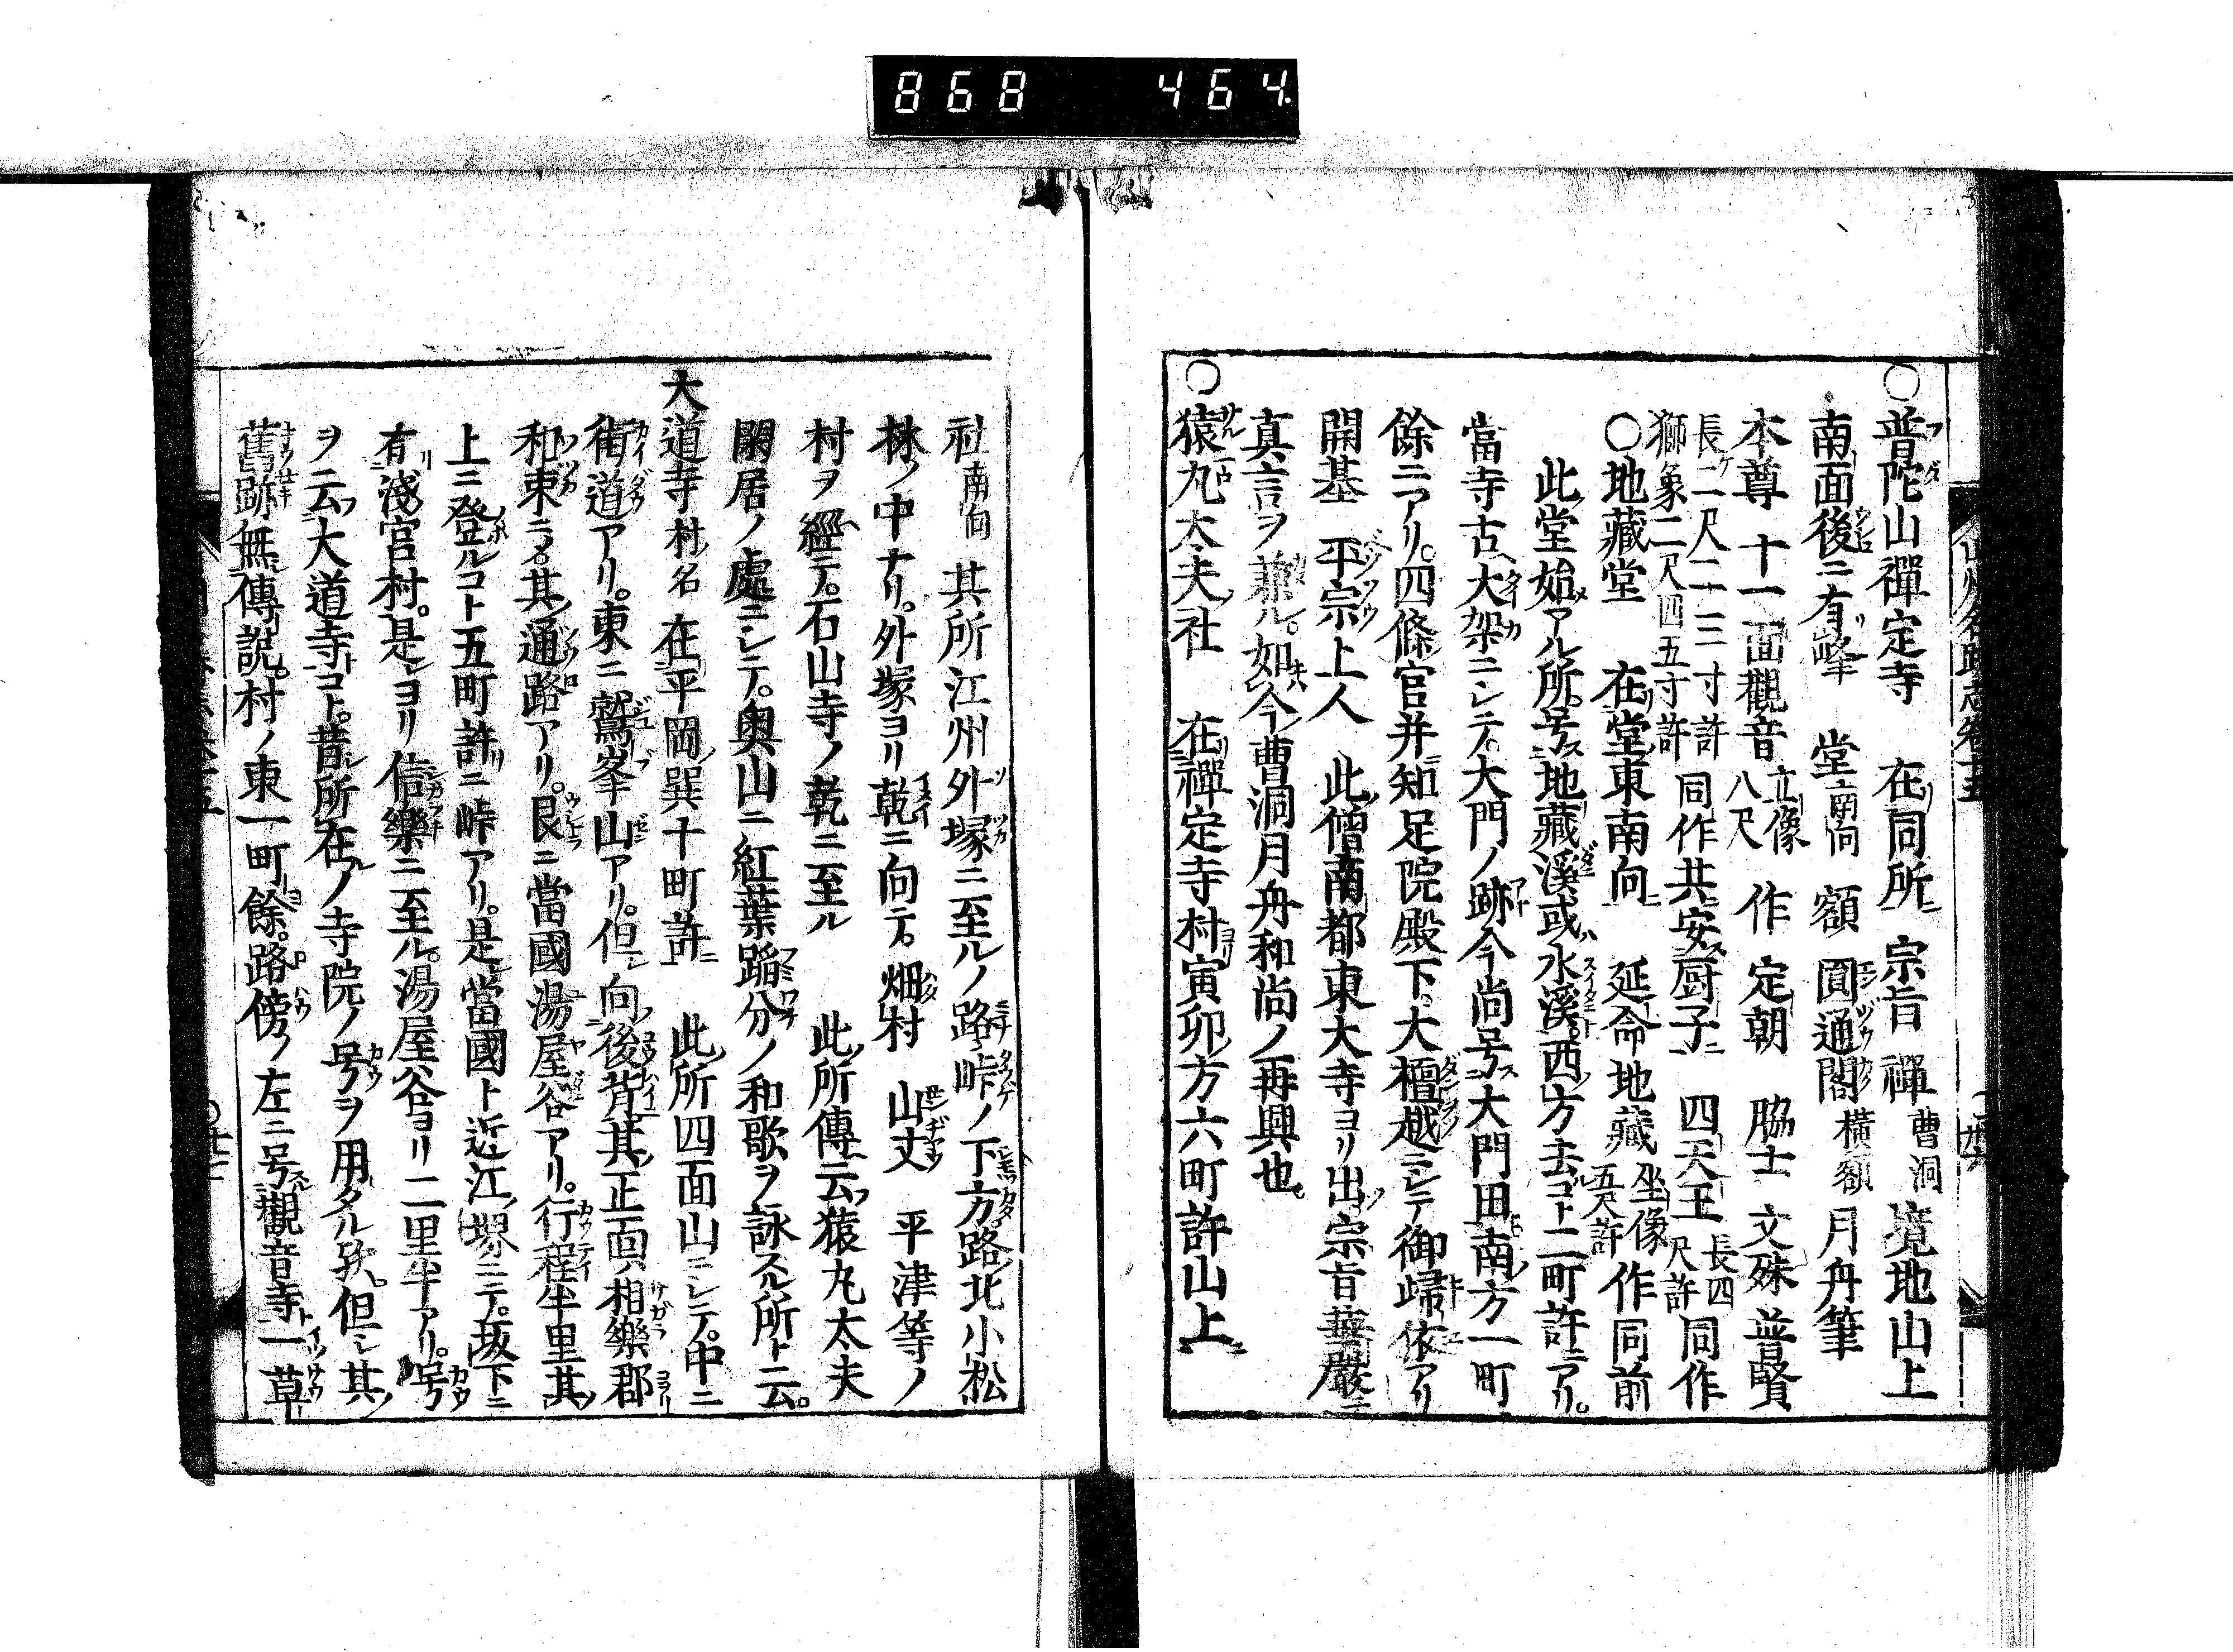 868 464
○普陀山禪定寺 在同所 宗旨 禪 曹洞 境地山上
南面後ニ有峰 堂 南向 額 圓通閣 横額 月舟筆
本尊 十一面觀音 立像八尺 作 定朝 脇士 文殊 普賢
長ケ二尺二三寸許 獅象二尺四五寸許 同作共安厨子ニ 四天王 長四尺許 同作
○地藏堂 在堂東南向 延命地藏 坐像五尺許 作同前
此堂始アル所。号ス地藏溪或ハ水溪。西方去コト二町許ニアリ。
當寺古ヘ大架ニシテ。大門ノ跡今尚号ス大門田南方一町
餘ニアリ。四條官并知足院殿下。大檀越ニシテ御歸依アリ
開基 平宗上人 此僧南都東大寺ヨリ出。宗旨華嚴ニ
真言ヲ兼ル。如今曹洞月舟和尚ノ再興也。
○猿丸太夫社 在禪定寺村寅卯方六町許山上ニ
社南向 其所江州外塚ニ至ルノ路。峠ノ下方。路北小松
林ノ中ナリ。外塚ヨリ乾ニ向テ。畑村 山丈 平津等ノ
村ヲ經テ。石山寺ノ乾ニ至ル 此所傳云猿丸太夫
閑居ノ處ニシテ。奥山ニ紅葉蹈分ノ和歌ヲ詠スル所ト云。
大道寺 村名 在平岡巽十町許ニ 此所四面山ニシテ。中ニ
街道アリ。東ニ鷲峯山アリ。但シ向後背其正面與相樂郡
和束ニ其通路アリ。艮ニ當國湯屋谷アリ。行程半里其
上ニ登ルコト五町許リニ峠アリ。是當國ト近江ノ堺ニテ。坂下ニ
有淺宮村。是ヨリ信樂ニ至ル。湯屋谷ヨリ二里半アリ。号
ヲ云大道寺コト。昔シ所在ノ寺院ノ号ヲ用タル欤。但シ其
舊跡無傳説。村ノ東一町餘。路傍ノ左ニ号觀音寺ト一草